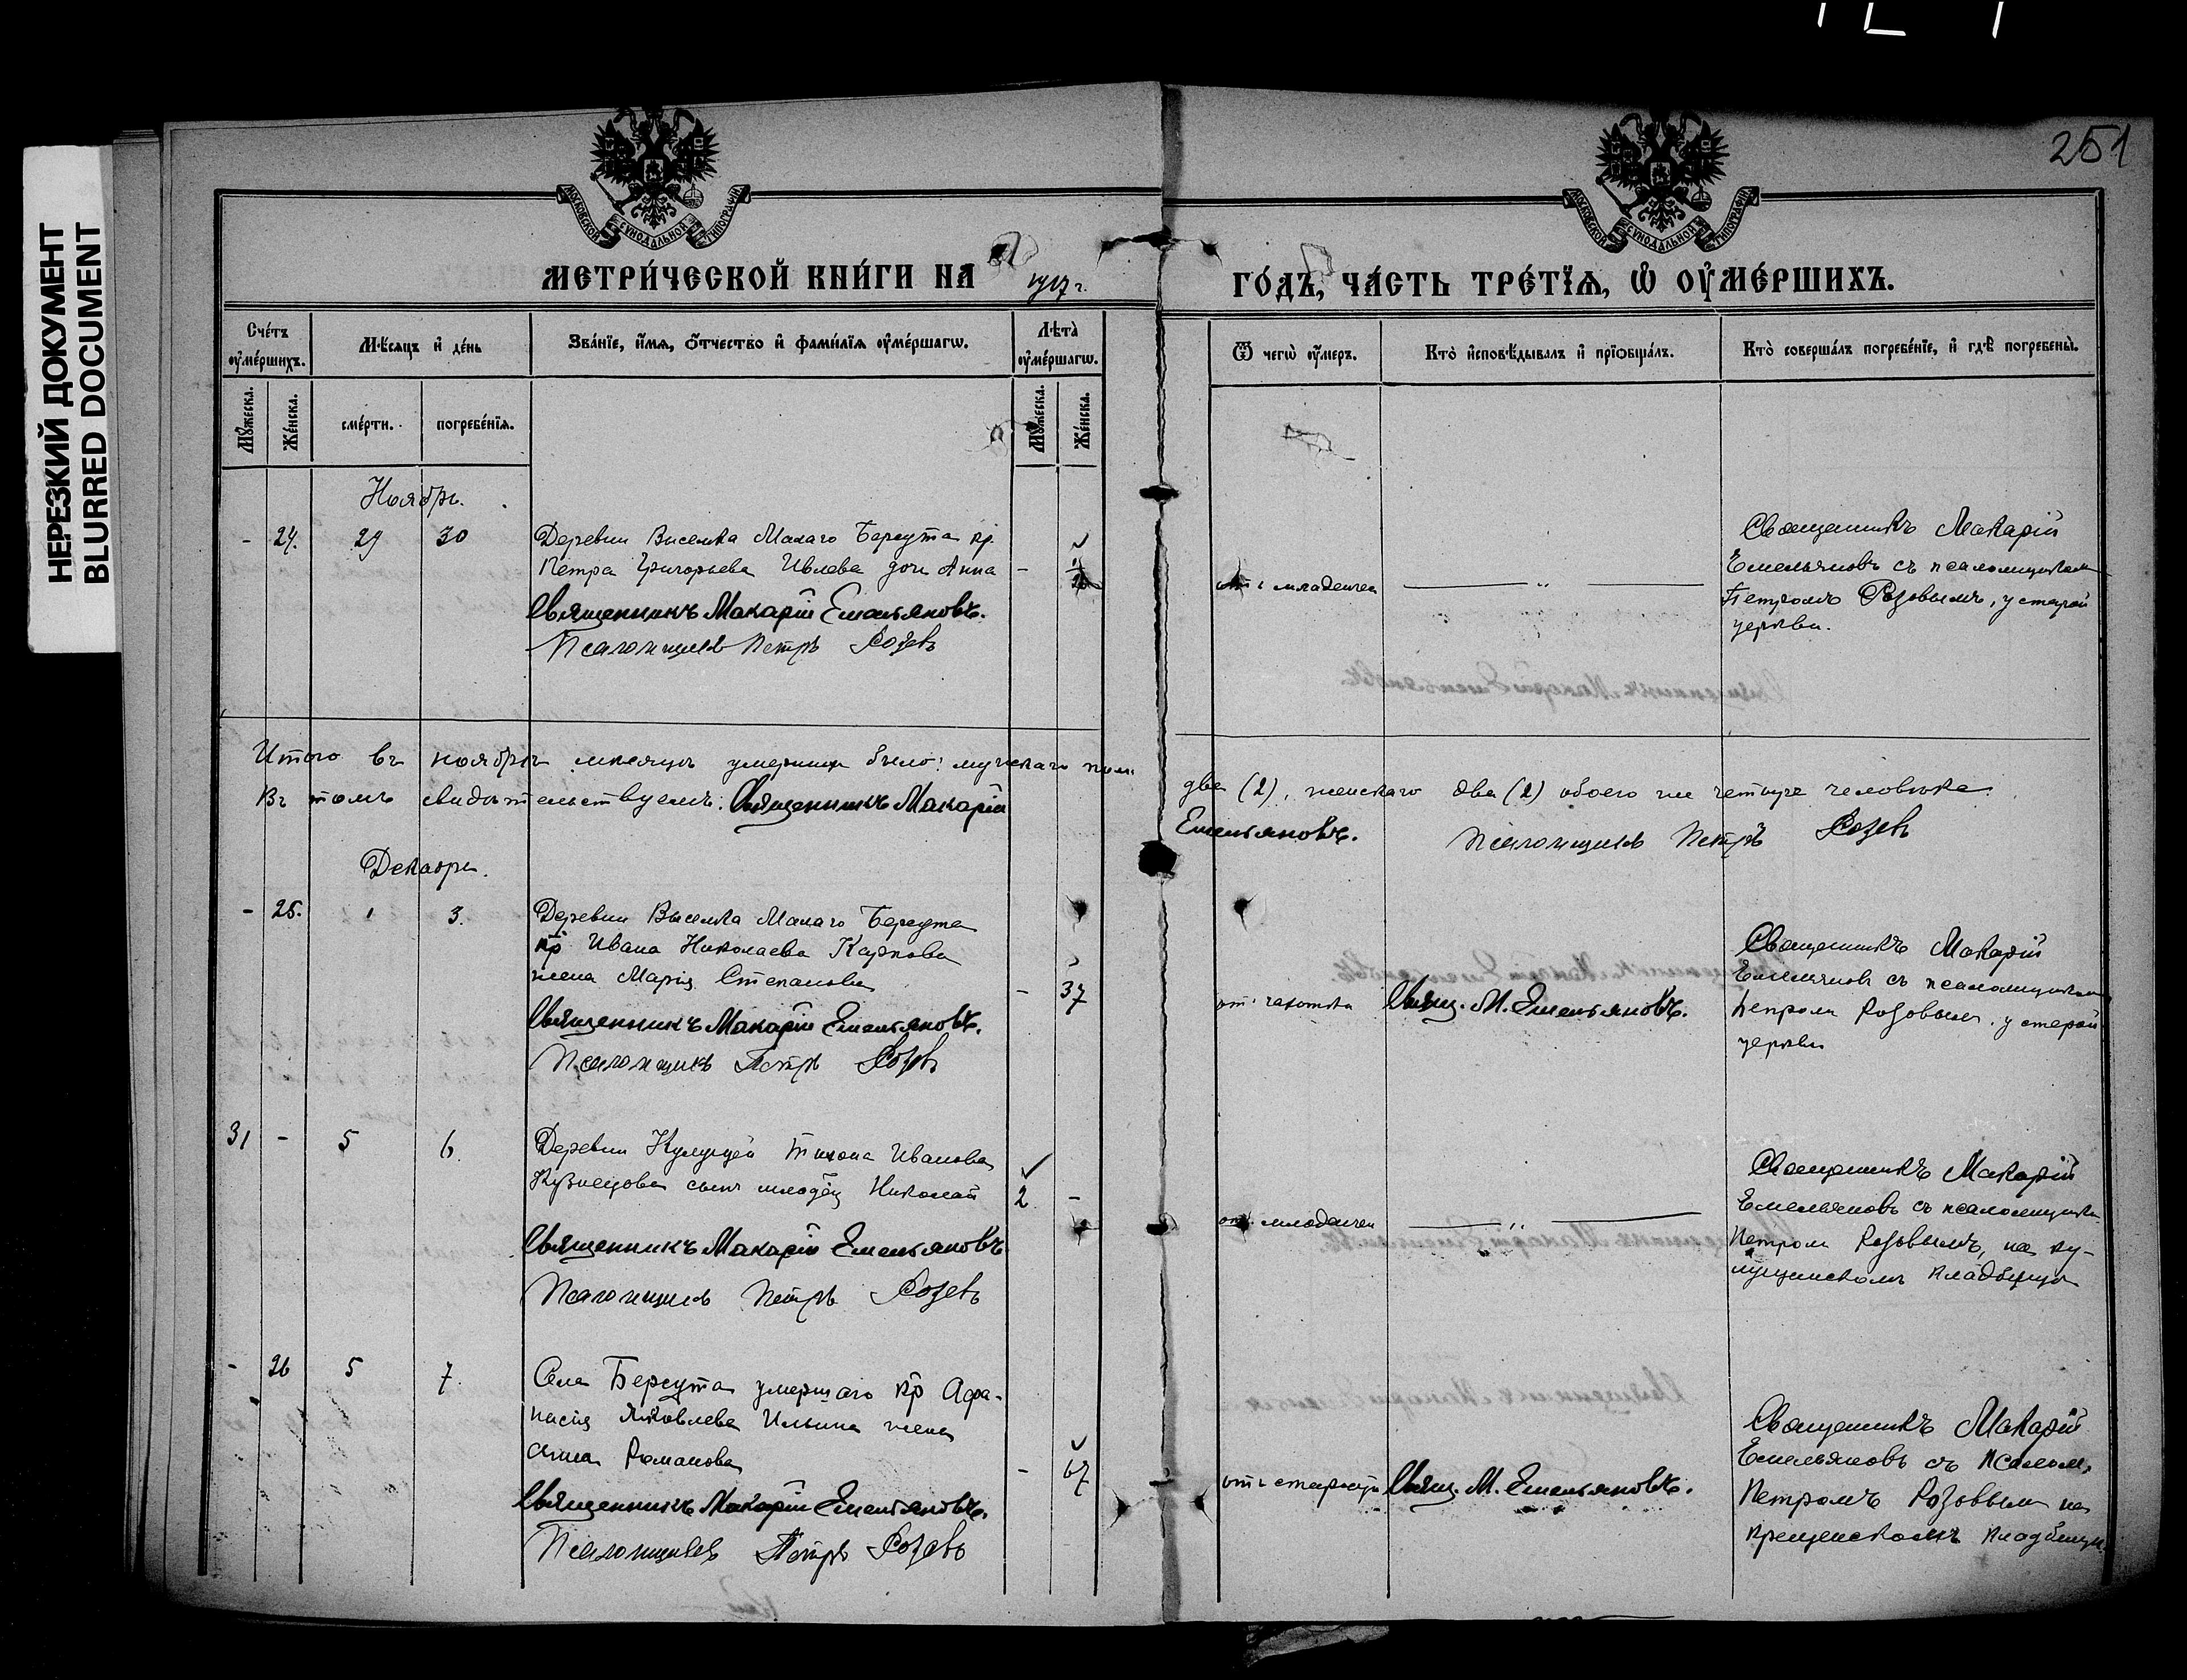 251
НЕРЕЗКИЙ ДОКУМЕНТ
BLURRED DOCUMENT
МОСКОВСКОЙ СУНОДАЛЬНОЙ ТИПОГРАФІИ
МОСКОВСКОЙ СУНОДАЛЬНОЙ ТИПОГРАФІИ
МЕТРИ́ЧЕСКОЙ КНИ́ГИ НА 1917 г.
ГО́ДЪ, ЧА́СТЬ ТРЕ́ТЇѦ, Ѽ ОУ҆МЕ́РШИХЪ.
Сче́тъ оу҆ме́ршихъ.
Мѣ́сѧцъ и҆ де́нь
Зва́нїе, и҆́мѧ, ѻ҆́тчество и҆ фами́лїѧ оу҆ме́ршагѡ.
Лѣ́та оу҆ме́ршагѡ.
Ѿ чегѡ̀ оу҆́меръ.
Кто̀ и҆сповѣ́дывалъ и҆ прїѡбща́лъ.
Кто̀ соверша́лъ погребе́нїе, и҆ гдѣ̀ погребены̀.
Мꙋ́жеска.
Же́нска.
сме́рти.
погребе́нїѧ.
Мꙋ́жеска.
Же́нска.
Ноябрь.
- 24. 29 30 Деревни Виселка Малаго Берсута кр.
Петра Григорьева Ивлева дочь Анна -
Священникъ Макарій Емельяновъ.
Псаломщикъ Петръ Розовъ
отъ младенчес
Священникъ Макарій
Емельяновъ съ псаломщикомъ
Петромъ Розовымъ, у старой
церкви.
Итого въ ноябрѣ мѣсяцѣ умершихъ было: мужскаго пола
два (2), женскаго два (2) обоего пола четыре человѣка.
Въ томъ свидѣтельствуемъ: Священникъ Макарій
Емельяновъ. Псаломщикъ Петръ Розовъ
Декабрь.
- 25. 1 3. Деревни Выселка Малаго Берсута
кр Ивана Николаева Карпова
жена Марія Степанова - 37
Священникъ Макарій Емельяновъ.
Псаломщикъ Петръ Розовъ
отъ чахотки Свящ. М. Емельяновъ.
Священникъ Макарій
Емельяновъ съ псаломщикомъ
Петромъ Розовымъ, у старой
церкви
31 - 5 6. Деревни Кулущей Тихона Иванова
Кузнецова сынъ младец Николай 2 -
Священникъ Макарій Емельяновъ
Псаломщикъ Петръ Розовъ
от. младенчес
Священникъ Макарій
Емельяновъ съ псаломщикомъ
Петромъ Розовымъ, на ку-
лущинскомъ кладбищѣ
- 26 5 7. Села Берсута умершаго кр Афа-
насія Яковлева Ильина жена
Анна Романова - 67
Священникъ Макарій Емельяновъ.
Псаломщикъ Петръ Розовъ
отъ старости Свящ. М. Емельяновъ.
Священникъ Макарій
Емельяновъ съ псалом.
Петромъ Розовымъ на
крещенскомъ кладбищѣ